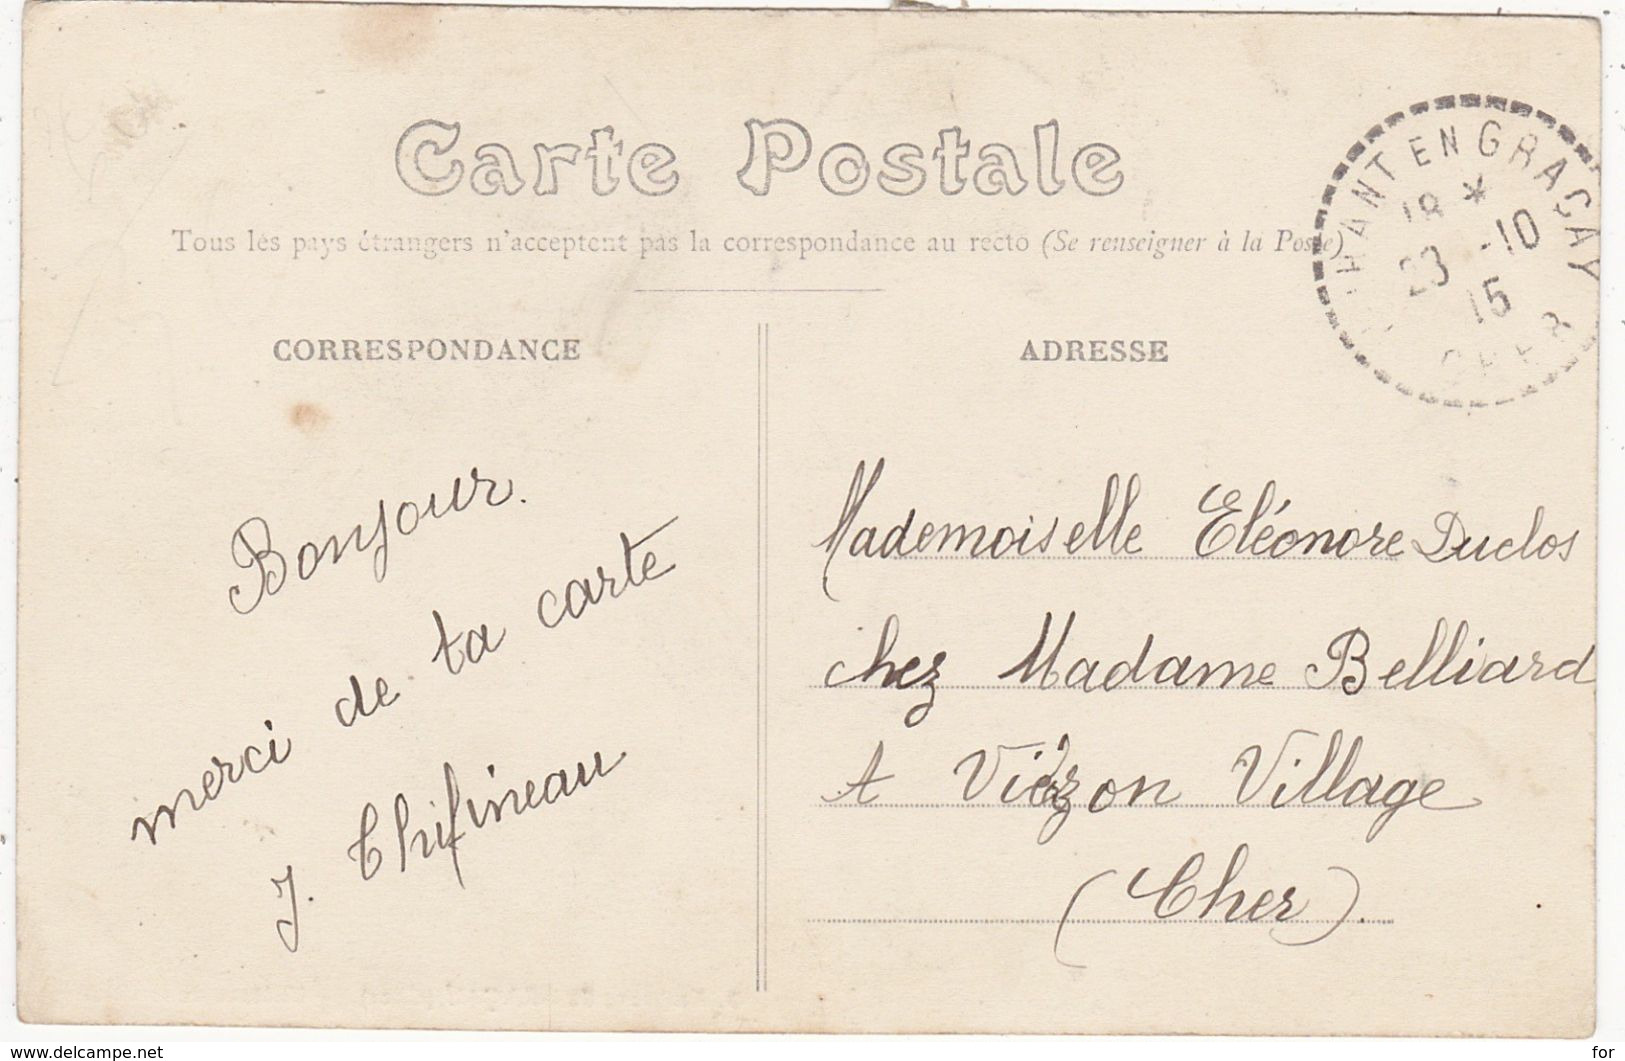 Carte Postale
Tous les pays étrangers n'acceptent pas la correspondance au recto (Se renseigner à la Poste)
CORRESPONDANCE
ADRESSE
HANT EN GRAÇAY
18 *
23 -10
15
CHER
Bonjour.
merci de ta carte
J. Chifineau
Mademoiselle Eléonore Duclos
chez Madame Belliard
A Vierzon Village
(Cher).
www.delcampe.net
for